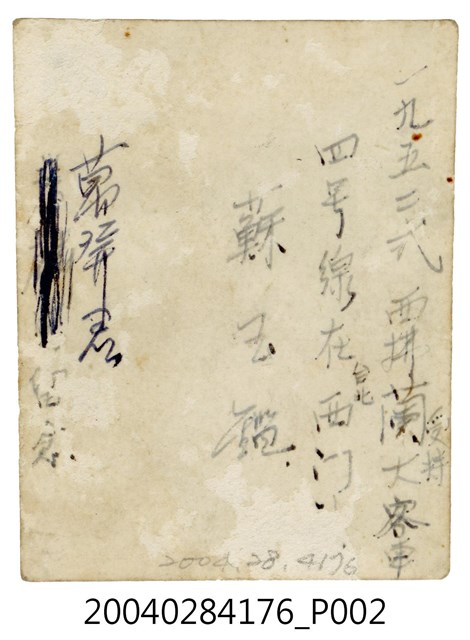 一九五三式西拼蘭大客車
受持
四号線在台北西门
蘇玉鑑
萬
留念
2004.28.4176
20040284176_P002